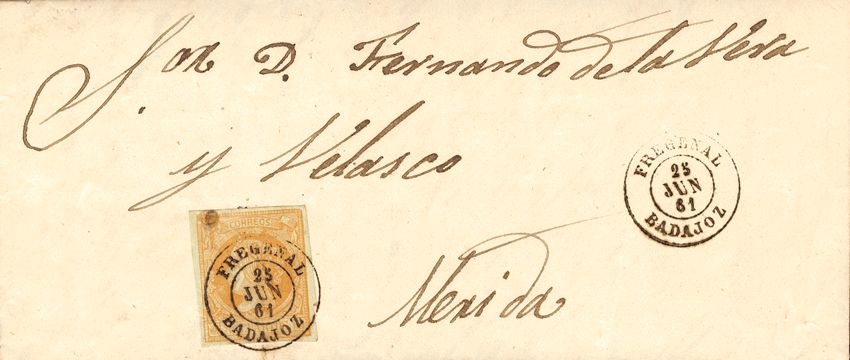 Sor D. Fernando de la Vera
y Velasco
Merida
FREGENAL
25
JUN
61
BADAJOZ
CORREOS
FREGENAL
25
JUN
61
BADAJOZ